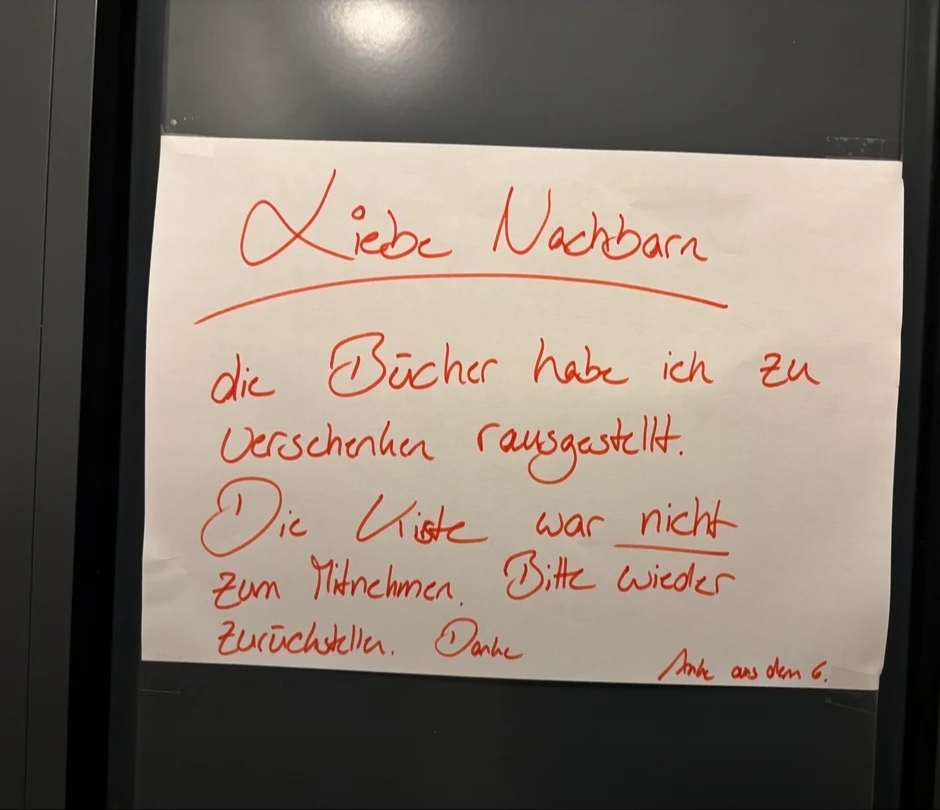 Liebe Nachbarn
die Bücher habe ich zu
verschenken rausgestellt.
Die Kiste war nicht
zum Mitnehmen. Bitte wieder
zurückstellen. Danke
Anke aus dem 6.